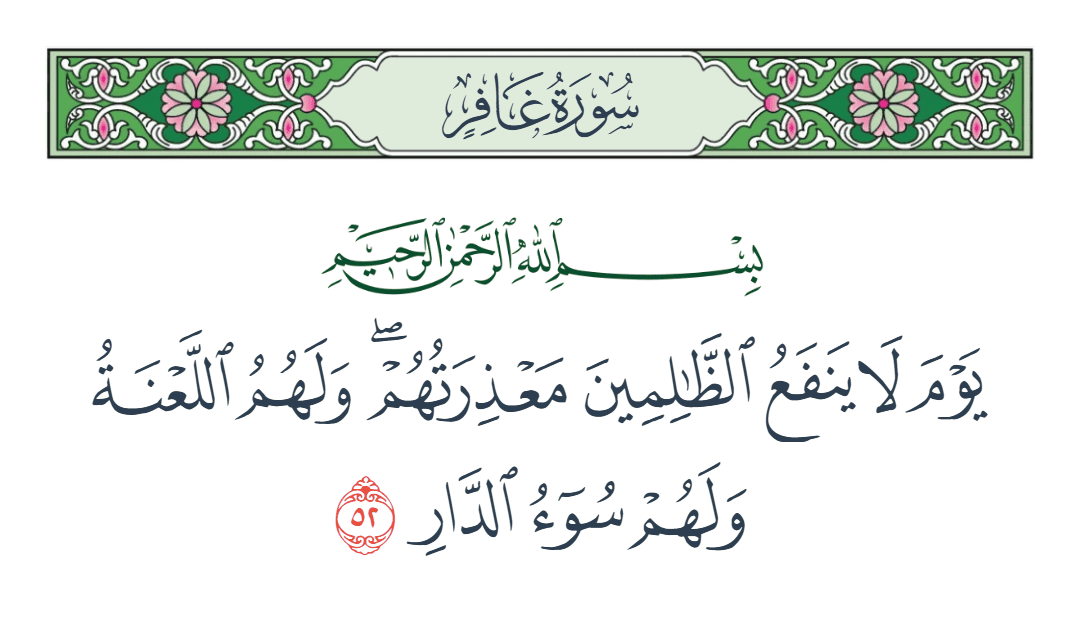 سُورَةُ غَافِرٍ
بِسْمِ ٱللَّهِ ٱلرَّحْمَٰنِ ٱلرَّحِيمِ
يَوْمَ لَا يَنفَعُ ٱلظَّٰلِمِينَ مَعْذِرَتُهُمْ ۖ وَلَهُمُ ٱللَّعْنَةُ
وَلَهُمْ سُوٓءُ ٱلدَّارِ ٥٢